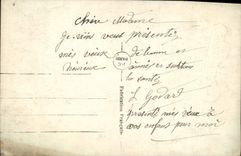 chère Madame
je viens vous présenter
mes vœux
de bonne
année et surtout
la santé
L Godart
présenté mes vœux à
vos enfants pour moi
Fabrication Française